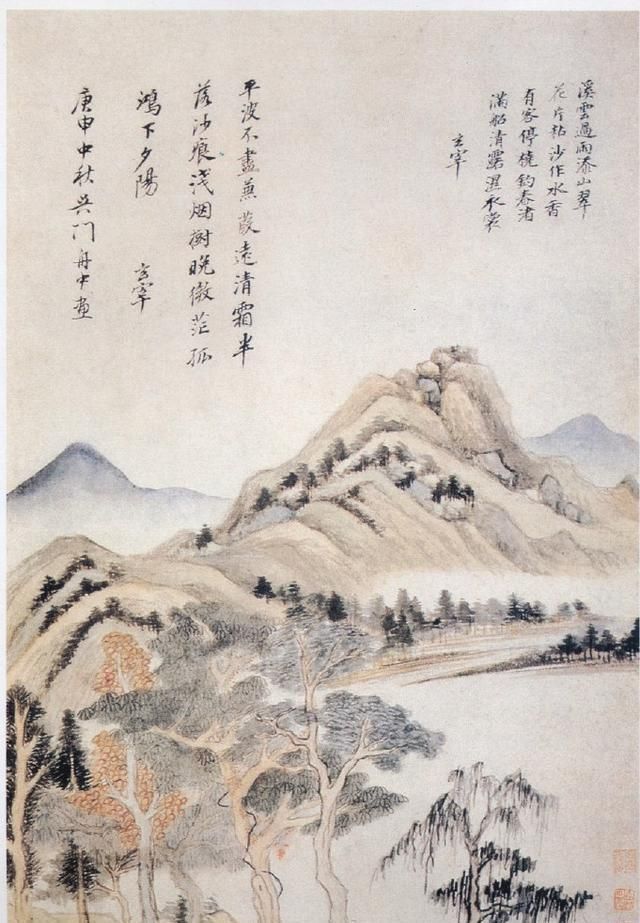 溪雲過雨添山翠
花片粘沙作水香
有客停橈釣春渚
滿船清露濕衣裳
玄宰
平波不盡蒹葭遠清霜半
落沙痕淺烟樹晚微茫孤
鴻下夕陽 玄宰
庚申中秋吳門舟中畫